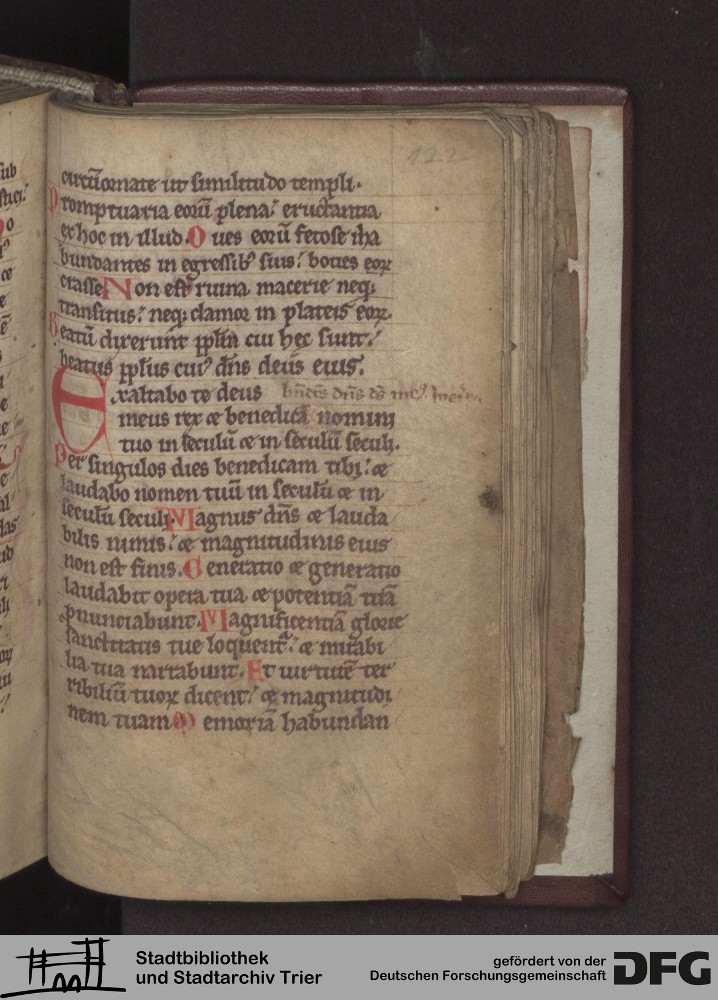 122
circūornate ut similitudo templi.
Promptuaria eorū plena: eructantia
ex hoc in illud. Oues eorū fetose ha
bundantes in egressibꝰ suis: boues eoꝝ
crasse. Non est ruina macerie neqꝫ
transitus: neqꝫ clamor in plateis eoꝝ.
Beatū dixerunt ppl̄m cui hec sunt:
beatus ppl̄us cuiꝰ dn̄s deus eius.
Exaltabo te deus
meus rex & benedicā nomini
tuo in seculū & in seculū seculi.
Per singulos dies benedicam tibi: &
laudabo nomen tuū in seculū & in
seculū seculi. Magnus dn̄s & lauda
bilis nimis: & magnitudinis eius
non est finis. Generatio & generatio
laudabit opera tua & potentiā tuā
pnunciabunt. Magnificentiā glorie
sanctitatis tue loquent᷑: & mirabi
lia tua narrabunt. Et uirtutē ter
ribiliū tuoꝝ dicent: & magnitudi
nem tuam. Memoriā habundan
Stadtbibliothek
und Stadtarchiv Trier
gefördert von der
Deutschen Forschungsgemeinschaft
DFG